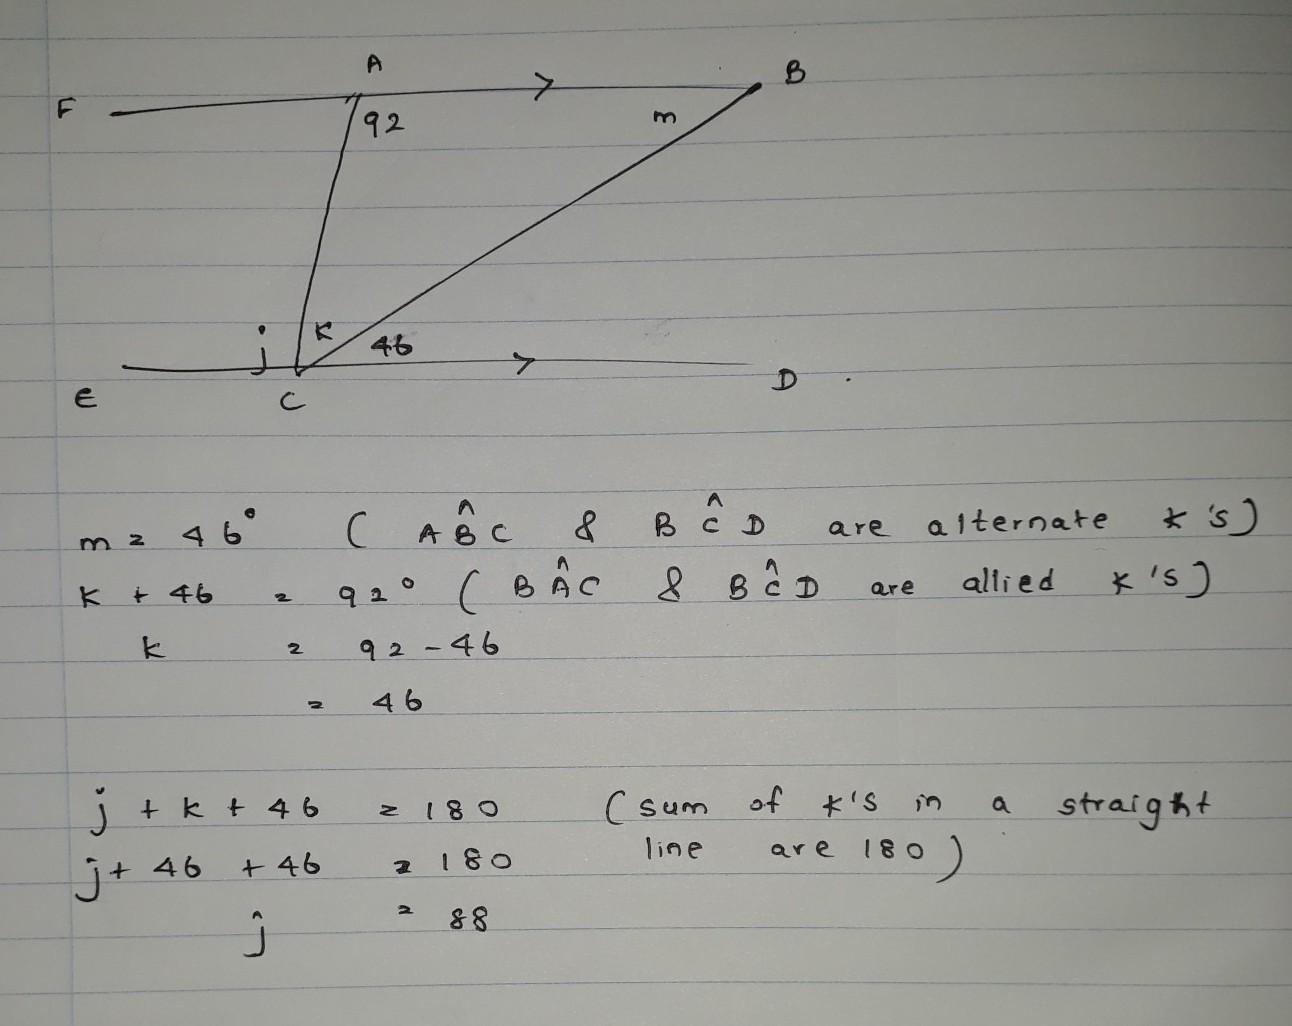 A
B
F
92
m
j
k
46
E
C
D
m = 46° ( AB̂C & BĈD are alternate ∠'s)
k + 46 = 92° ( BÂC & BĈD are allied ∠'s)
k = 92 - 46
= 46
j + k + 46 = 180 (sum of ∠'s in a straight
line are 180)
j + 46 + 46 = 180
ĵ = 88